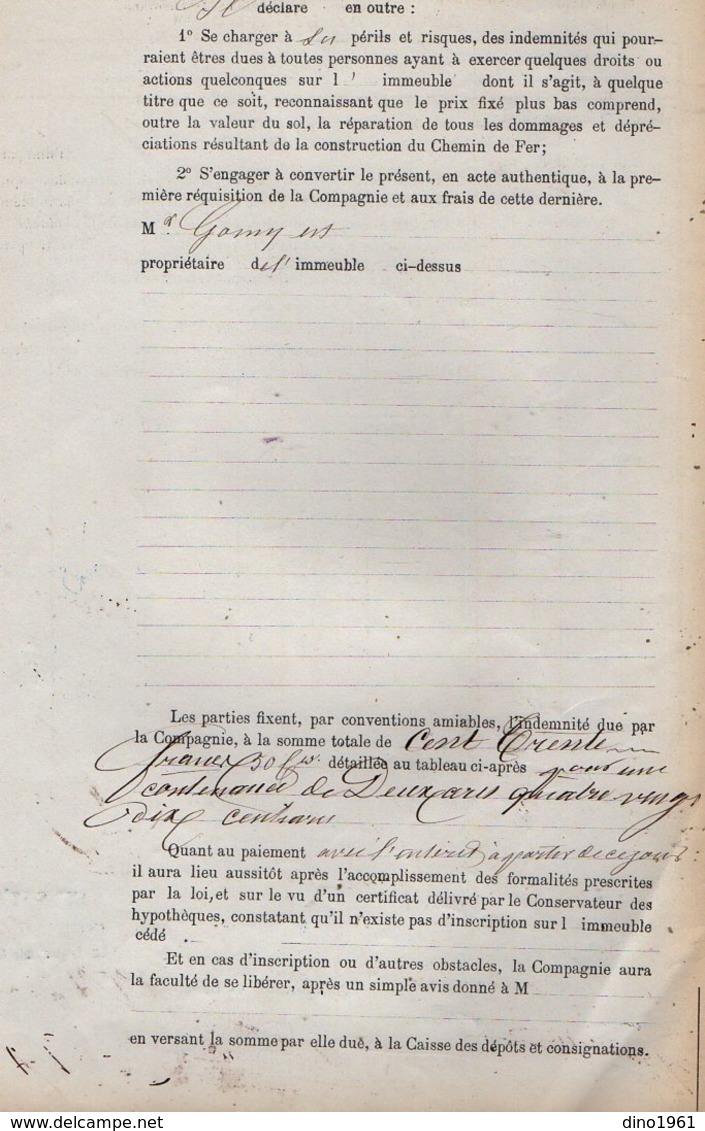 déclare en outre :
1º Se charger à ses périls et risques, des indemnités qui pour-
raient êtres dues à toutes personnes ayant à exercer quelques droits ou
actions quelconques sur l ' immeuble dont il s'agit, à quelque
titre que ce soit, reconnaissant que le prix fixé plus bas comprend,
outre la valeur du sol, la réparation de tous les dommages et dépré-
ciations résultant de la construction du Chemin de Fer;
2º S'engager à convertir le présent, en acte authentique, à la pre-
mière réquisition de la Compagnie et aux frais de cette dernière.
Mr Gomy est
propriétaire de l' immeuble ci-dessus
Les parties fixent, par conventions amiables, l'indemnité due par
la Compagnie, à la somme totale de Cent Trente
francs 50 détaillée au tableau ci-après pour une
contenance de Deux ares quatre vingt
dix centiares
Quant au paiement avec l'intérêt à partir de ce jour :
il aura lieu aussitôt après l'accomplissement des formalités prescrites
par la loi, et sur le vu d'un certificat délivré par le Conservateur des
hypothèques, constatant qu'il n'existe pas d'inscription sur l immeuble
cédé
Et en cas d'inscription ou d'autres obstacles, la Compagnie aura
la faculté de se libérer, après un simple avis donné à M
en versant la somme par elle due, à la Caisse des dépôts et consignations.
dino1961